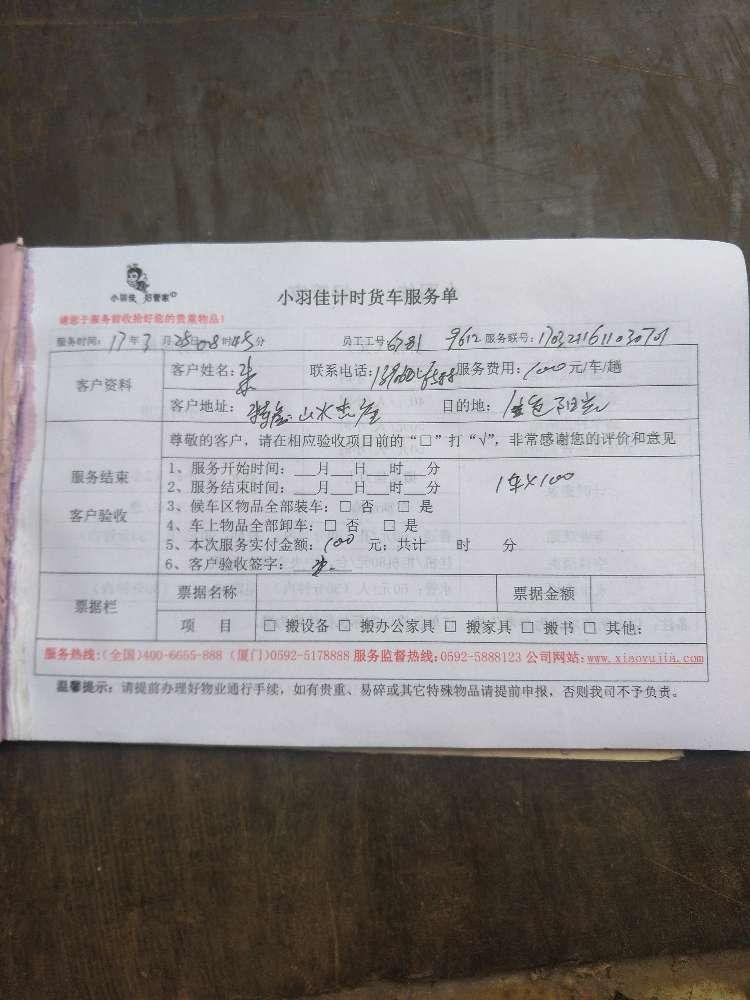 小羽佳 好管家
小羽佳计时货车服务单
请您于服务前收拾好您的贵重物品!
服务时间: 17年3月25日08时45分 员工工号: 6781 9612 服务联号:
客户资料
客户姓名: 联系电话: 服务费用: 100元/车/趟
客户地址: 山水 目的地:
尊敬的客户,请在相应验收项目前的“□”打“√”,非常感谢您的评价和意见
服务结束
客户验收
1、服务开始时间:___月___日___时___分
2、服务结束时间:___月___日___时___分
1车X100
3、候车区物品全部装车:□ 否 □ 是
4、车上物品全部卸车:□ 否 □ 是
5、本次服务实付金额: 100 元;共计 时 分
6、客户验收签字:
票据栏
票据名称 票据金额
项 目 □ 搬设备 □ 搬办公家具 □ 搬家具 □ 搬书 □ 其他:
服务热线:(全国)400-6655-888 (厦门)0592-5178888 服务监督热线:0592-5888123 公司网站:www.xiaoyujia.com
温馨提示:请提前办理好物业通行手续,如有贵重、易碎或其它特殊物品请提前申报,否则我司不予负责。